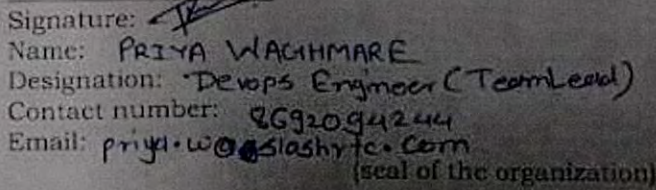 Signature:
Name: PRIYA WAGHMARE
Designation: Devops Engineer (TeamLead)
Contact number: 8692094244
Email: priya.w@slashrtc.com
(seal of the organization)